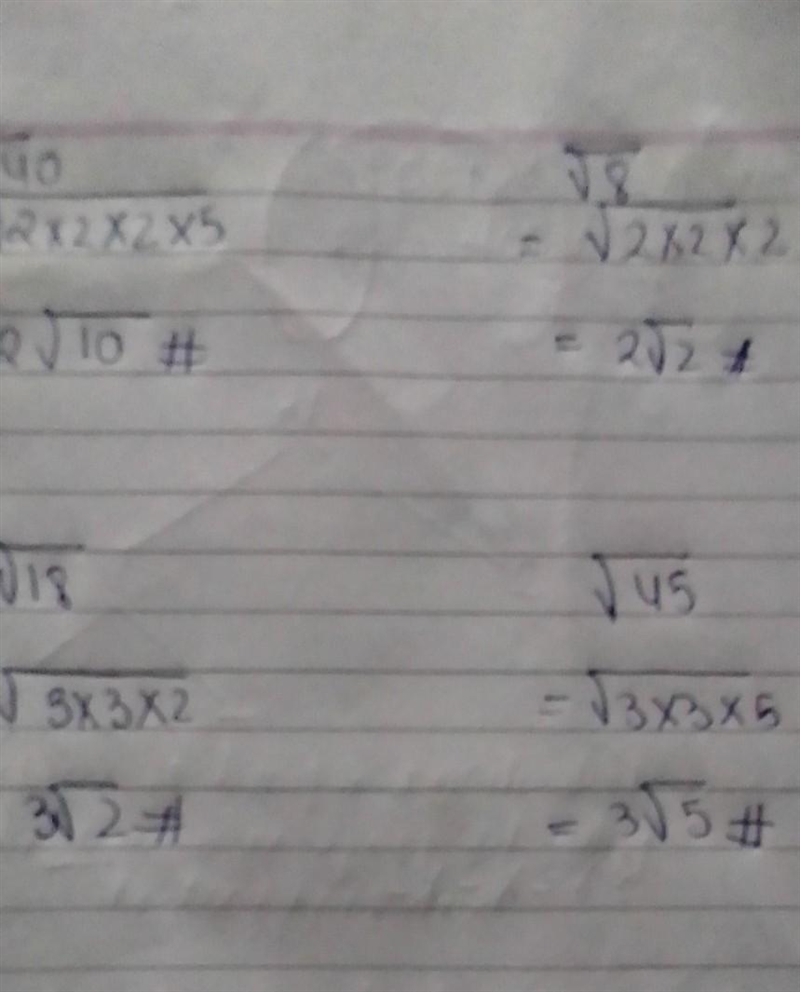 40
√2×2×2×5
2√10 #
√8
= √2×2×2
= 2√2
√18
√3×3×2
3√2 #
√45
= √3×3×5
= 3√5 #